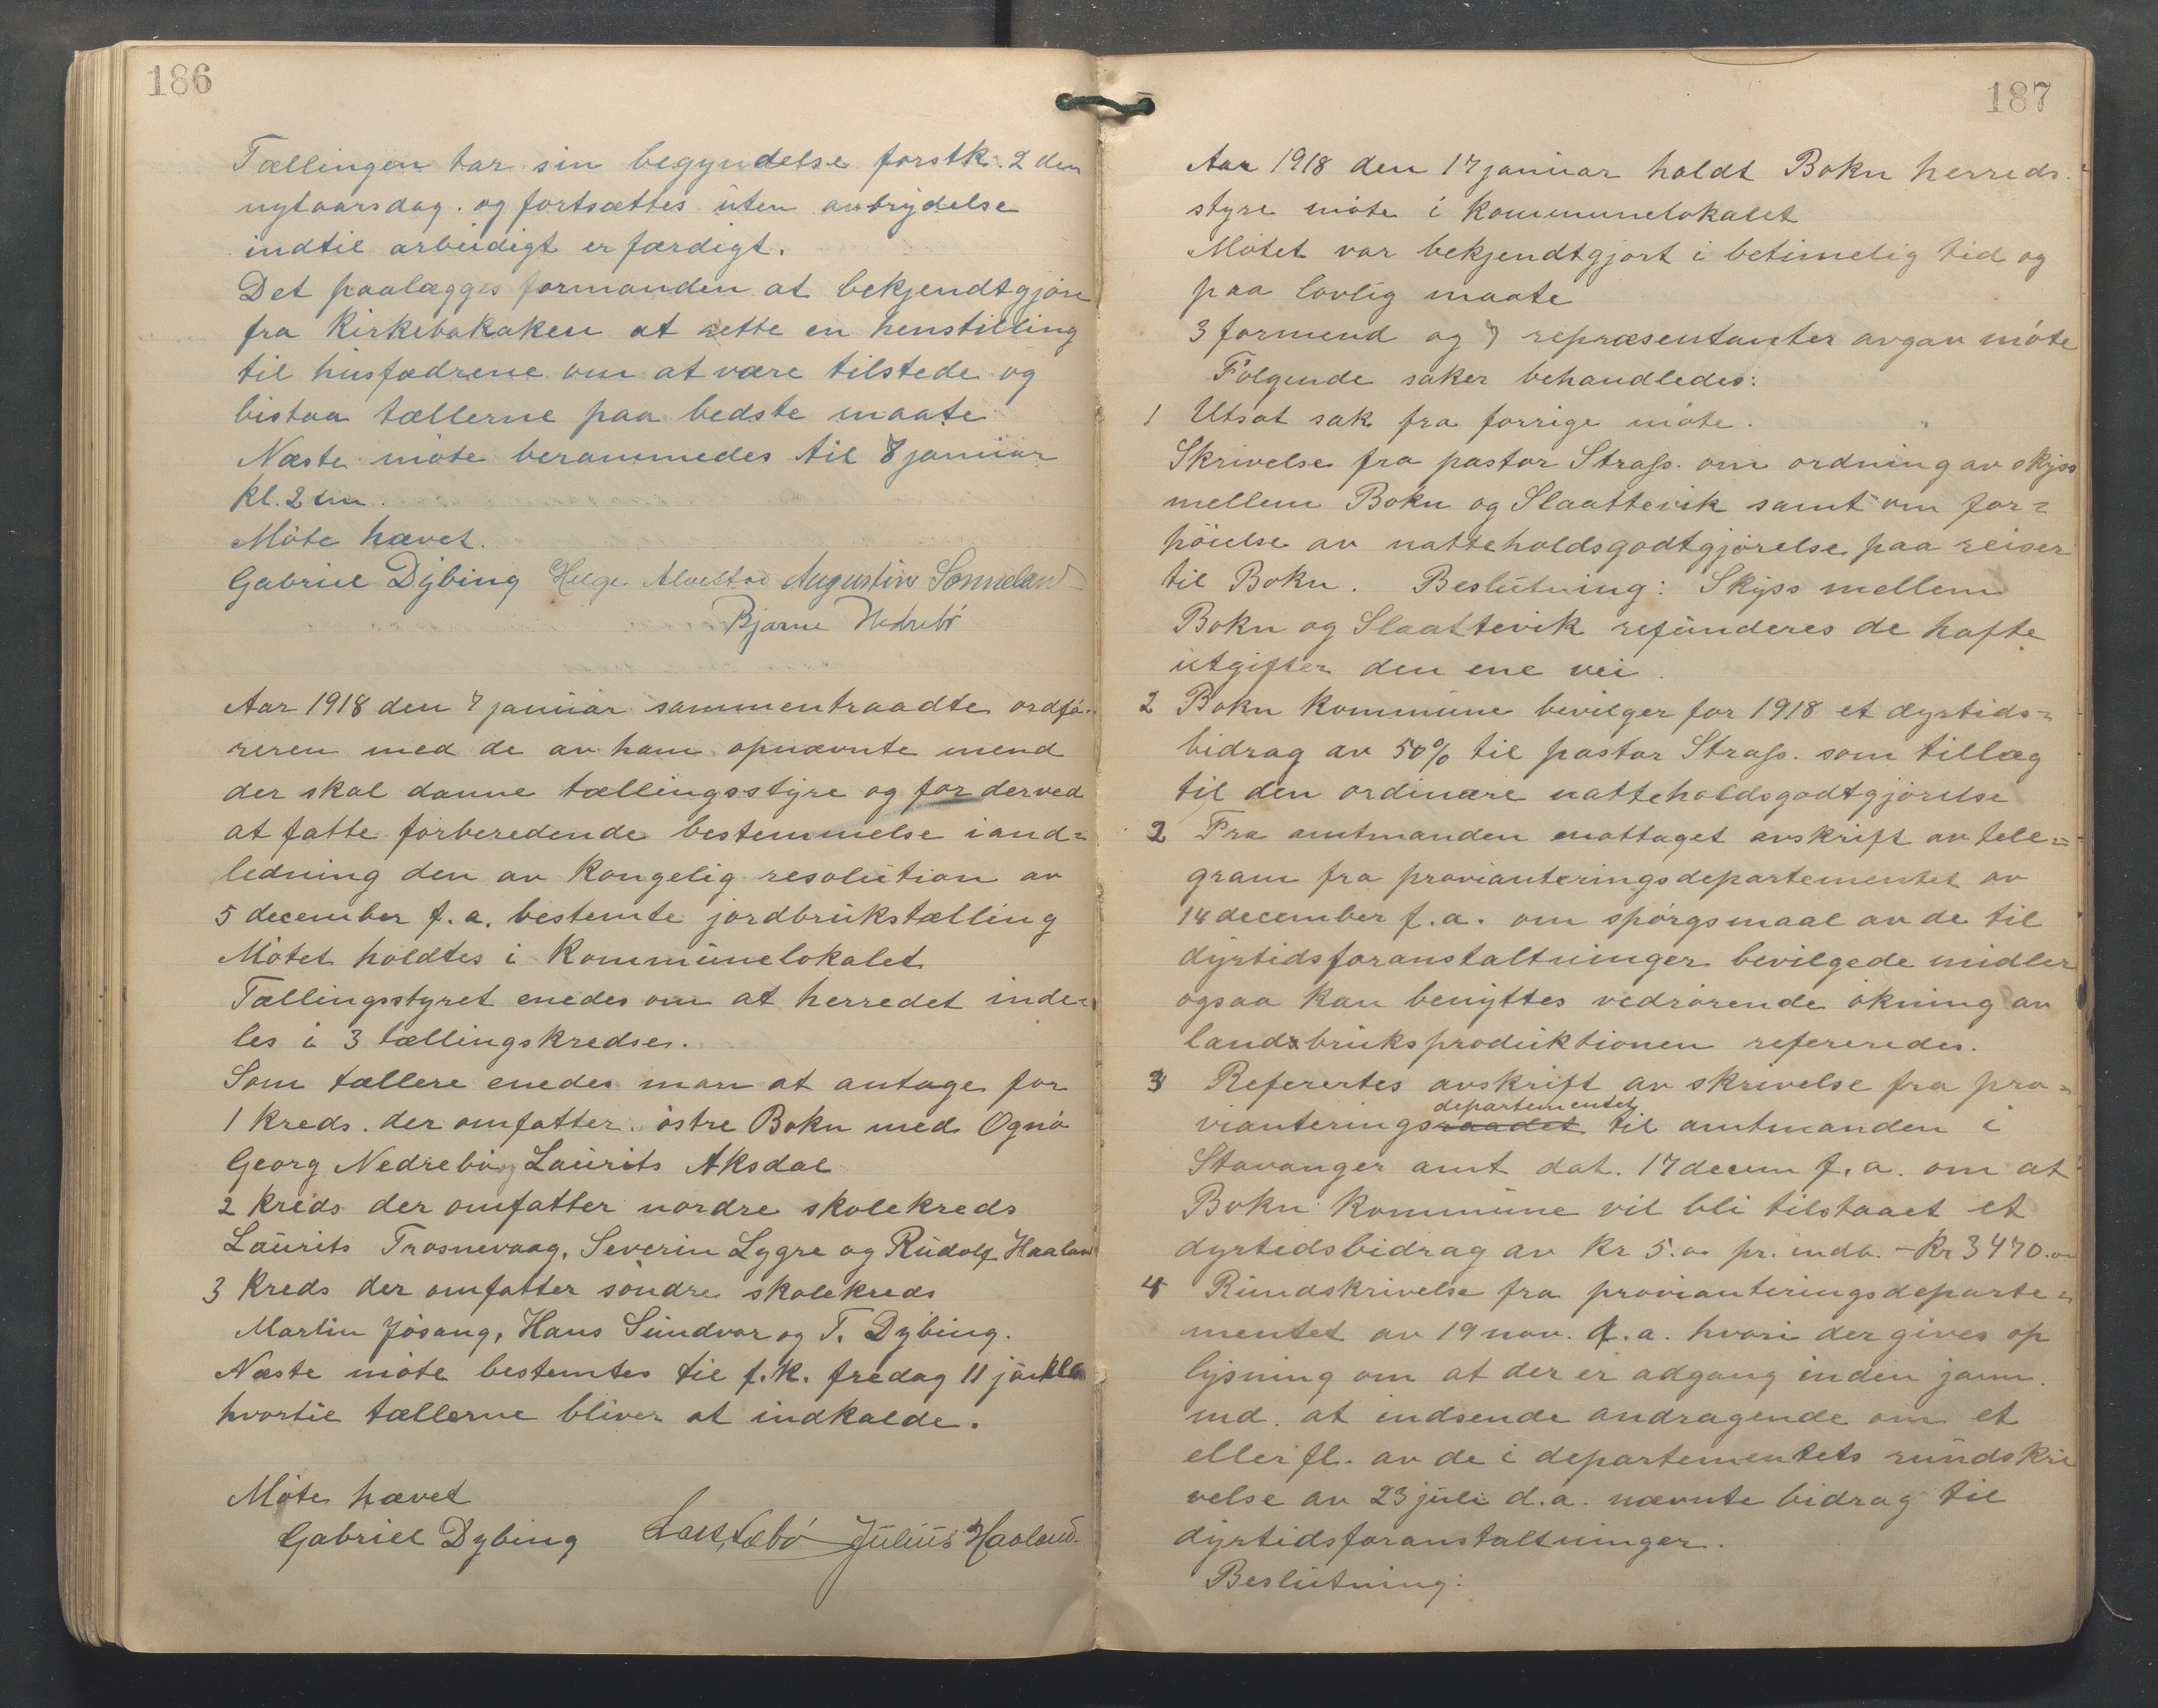 186
Tællingen tar sin begyndelse forstk. 2 den
nytaarsdag. og fortsættes uten avbrydelse
indtil arbeidigt er færdigt.
Det paalægges formanden at bekjendtgjøre
fra Kirkebakaken at rette en henstilling
til husfædrene om at være tilstede og
bistaa tællerne paa bedste maate
Næste møte berammedes til 8 januar
kl. 2 em.
Møte hævet.
Gabriel Dybing Helge Alvestad Augustin
Bjarne Nedrebø
Aar 1918 den 7 januar sammentraadte ordfø-
reren med de av ham opnævnte mend
der skal danne tællingsstyre og for derved
at fatte forberedende bestemmelse i and=
ledning den av Kongelig resolution av
5 december f. a. bestemte jordbrukstælling
Møtet holdtes i Kommunelokalet
Tællingsstyret enedes om at herredet inde=
les i 3 tællingskredser.
Som tællere enedes man at antage for
1 Kreds. der omfatter. østre Bokn med Ognø
Georg Nedrebø, Laurits Aksdal
2 Kreds der omfatter nordre skolekreds
Laurits Trosnevaag, Severin Lygre og Rudolf Haaland
3 Kreds der omfatter søndre skolekreds
Martin Jøsang, Hans Sundvor og T. Dybing.
Næste møte bestemtes til f. k. fredag 11 jan
hvortil tællerne bliver at indkalde.
Møte hævet
Gabriel Dybing Lars Febø Julius Haaland.
187
Aar 1918 den 17 januar holdt Bokn herreds
styre møte i Kommunelokalet
Møtet var bekjendtgjort i betimelig tid og
paa lovlig maate
3 formend og 7 repræsentanter avgav møte
Følgende saker behandledes:
1 Utsat sak fra forrige møte.
Skrivelse fra pastor Strass. om ordning av skyss
mellem Bokn og Slaattevik samt om for=
høielse av natteholdsgodtgjørelse paa reiser
til Bokn. Beslutning: Skyss mellem
Bokn og Slaattevik refunderes de hafte
utgifter den ene vei.
2 Bokn Kommune bevilger for 1918 et dyrtids=
bidrag av 50% til pastor Strass. som tillæg
til den ordinære natteholdsgodtgjørelse
2 Fra amtmanden mottaget avskrift av tele=
gram fra provianteringsdepartementet av
14 december f. a. om spørgsmaal av de til
dyrtidsforanstaltninger bevilgede midler
ogsaa kan benyttes vedrørende økning av
landbruksproduktionen refereredes.
3 Referertes avskrift av skrivelse fra pro=
departementet
vianteringsraadet til amtmanden i
Stavanger amt dat. 17 decem f. a. om at
Bokn Kommune vil bli tilstaaet et
dyrtedsbidrag av Kr 5.00 pr. indb. - Kr 3470.00
4 Rundskrivelse fra provianteringsdeparte=
mentet av 19 nov. f. a. hvori der gives op
lysning om at der er adgang inden jann.
md. at indsende andragende om et
eller fl. av de i departementets rundskri
velse av 23 juli d. a. nævnte bidrag til
dyrtidsforanstaltninger.
Beslutning: